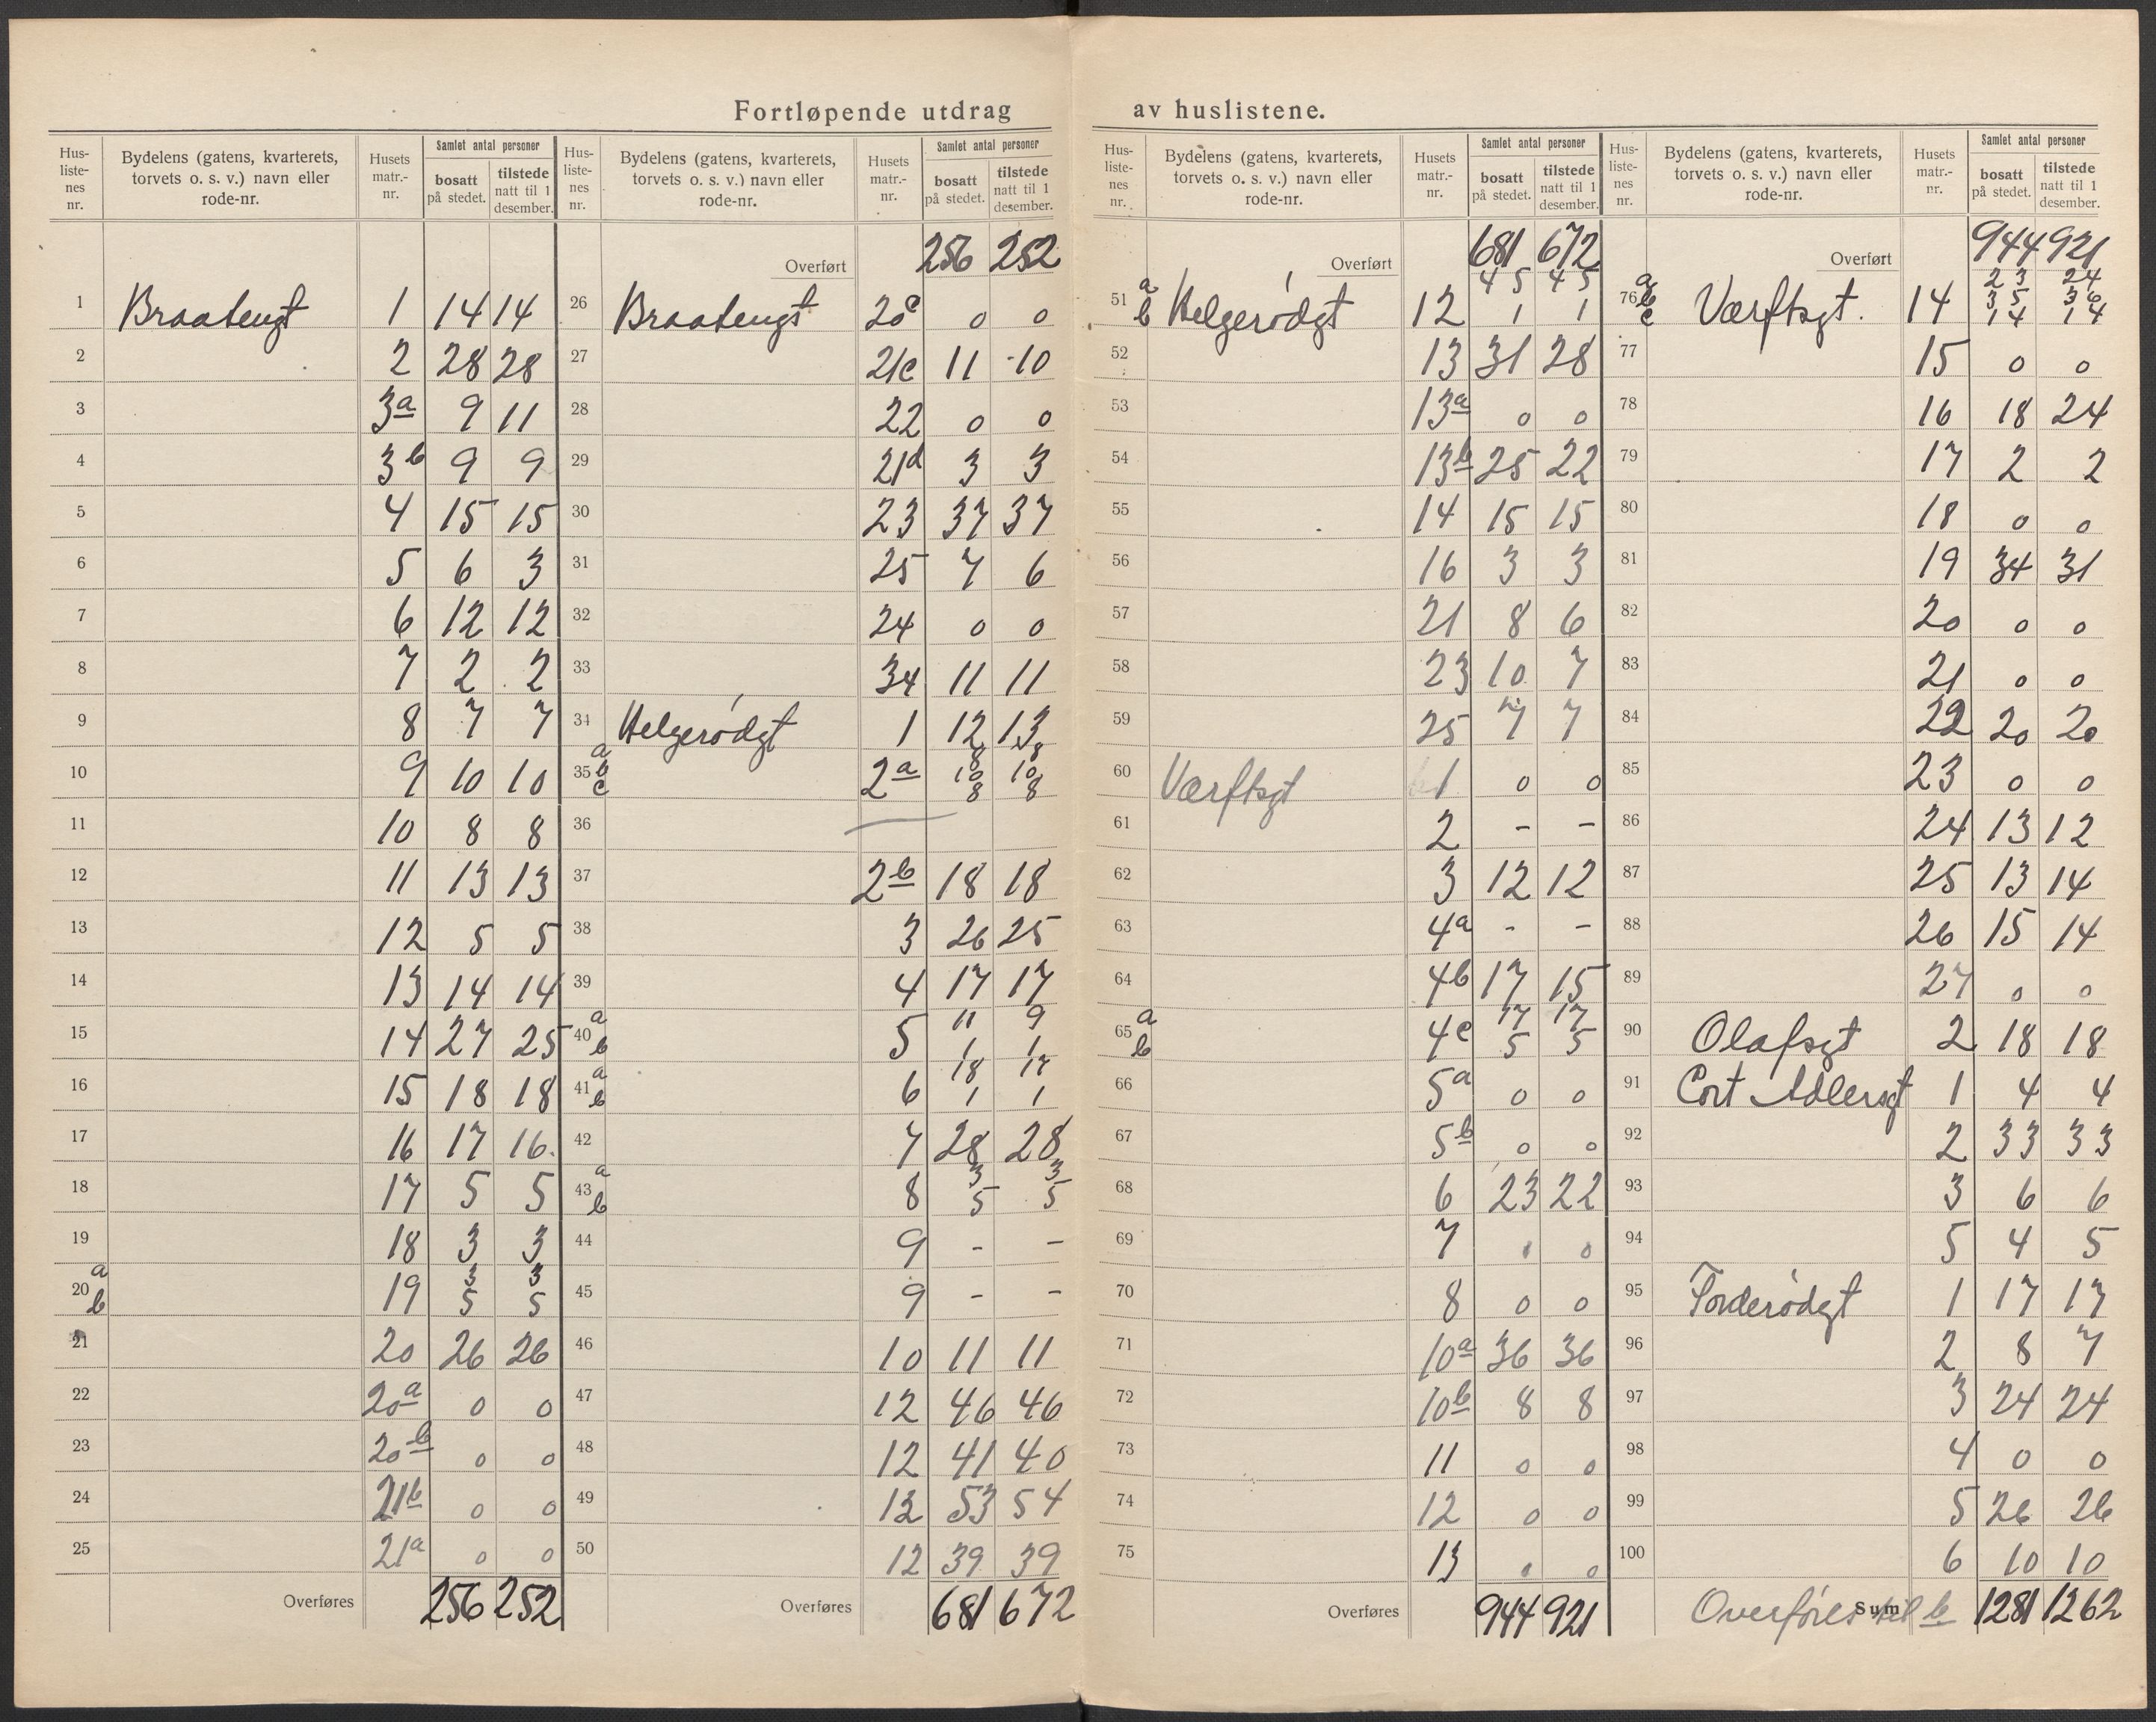 Fortløpende utdrag av huslistene.
Hus-listenes nr. | Bydelens (gatens, kvarterets, torvets o. s. v.) navn eller rode-nr. | Husets matr.-nr. | Samlet antal personer: bosatt på stedet. | tilstede natt til 1 desember.
1 Braatengt 1 14 14
2 2 28 28
3 3a 9 11
4 3b 9 9
5 4 15 15
6 5 6 3
7 6 12 12
8 7 2 2
9 8 7 7
10 9 10 10
11 10 8 8
12 11 13 13
13 12 5 5
14 13 14 14
15 14 27 25
16 15 18 18
17 16 17 16.
18 17 5 5
19 18 3 3
20 a 19 3 3
b 5 5
21 20 26 26
22 20a 0 0
23 20b 0 0
24 21b 0 0
25 21a 0 0
Overføres 256 252
Hus-listenes nr. | Bydelens (gatens, kvarterets, torvets o. s. v.) navn eller rode-nr. | Husets matr.-nr. | Samlet antal personer: bosatt på stedet. | tilstede natt til 1 desember.
Overført 256 252
26 Braatengt 20c 0 0
27 21c 11 10
28 22 0 0
29 21d 3 3
30 23 37 37
31 25 7 6
32 24 0 0
33 34 11 11
34 Helgerødgt 1 12 13
35 a 2a 8 8
b 10 10
c 8 8
36
37 2b 18 18
38 3 26 25
39 4 17 17
40 a 5 11 9
b 1 1
41 a 6 18 17
b 1 1
42 7 28 28
43 a 8 3 3
b 5 5
44 9 - -
45 9 - -
46 10 11 11
47 12 46 46
48 12 41 40
49 12 53 54
50 12 39 39
Overføres 681 672
Hus-listenes nr. | Bydelens (gatens, kvarterets, torvets o. s. v.) navn eller rode-nr. | Husets matr.-nr. | Samlet antal personer: bosatt på stedet. | tilstede natt til 1 desember.
Overført 681 672
51 a Helgerødgt 12 45 45
b 1 1
52 13 31 28
53 13a 0 0
54 13b 25 22
55 14 15 15
56 16 3 3
57 21 8 6
58 23 10 7
59 25 7 7
60 Værftsgt 1 0 0
61 2 - -
62 3 12 12
63 4a - -
64 4b 17 15
65 a 4c 17 17
b 5 5
66 5a 0 0
67 5b 0 0
68 6 23 22
69 7 0 0
70 8 0 0
71 10a 36 36
72 10b 8 8
73 11 0 0
74 12 0 0
75 13 0 0
Overføres 944 921
Hus-listenes nr. | Bydelens (gatens, kvarterets, torvets o. s. v.) navn eller rode-nr. | Husets matr.-nr. | Samlet antal personer: bosatt på stedet. | tilstede natt til 1 desember.
Overført 944 921
76 a Værftsgt. 14 23 24
b 35 36
c 14 14
77 15 0 0
78 16 18 24
79 17 2 2
80 18 0 0
81 19 34 31
82 20 0 0
83 21 0 0
84 22 20 20
85 23 0 0
86 24 13 12
87 25 13 14
88 26 15 14
89 27 0 0
90 Olafsgt 2 18 18
91 Cort Adlersgt 1 4 4
92 2 33 33
93 3 6 6
94 5 4 5
95 Torderødgt 1 17 17
96 2 8 7
97 3 24 24
98 4 0 0
99 5 26 26
100 6 10 10
Overføres til b Sum 1281 1262